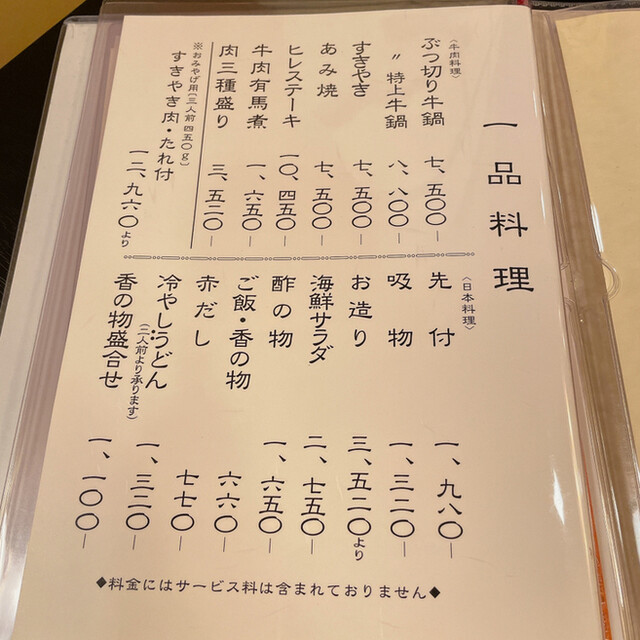 一品料理
〈牛肉料理〉
ぶつ切り牛鍋 七、五〇〇－
〃 特上牛鍋 八、八〇〇－
すきやき 七、五〇〇－
あみ焼 七、五〇〇－
ヒレステーキ 一〇、四五〇－
牛肉有馬煮 一、六五〇－
肉三種盛り 三、五二〇－
※おみやげ用〔三人前 四五〇g〕
すきやき肉・たれ付 一二、九六〇より
〈日本料理〉
先付 一、九八〇－
吸物 一、三二〇－
お造り 三、五二〇より
海鮮サラダ 二、七五〇－
酢の物 一、六五〇－
ご飯・香の物 六六〇－
赤だし 七七〇－
冷やしうどん 一、三二〇－
(二人前より承ります)
香の物盛合せ 一、一〇〇－
◆料金にはサービス料は含まれておりません◆